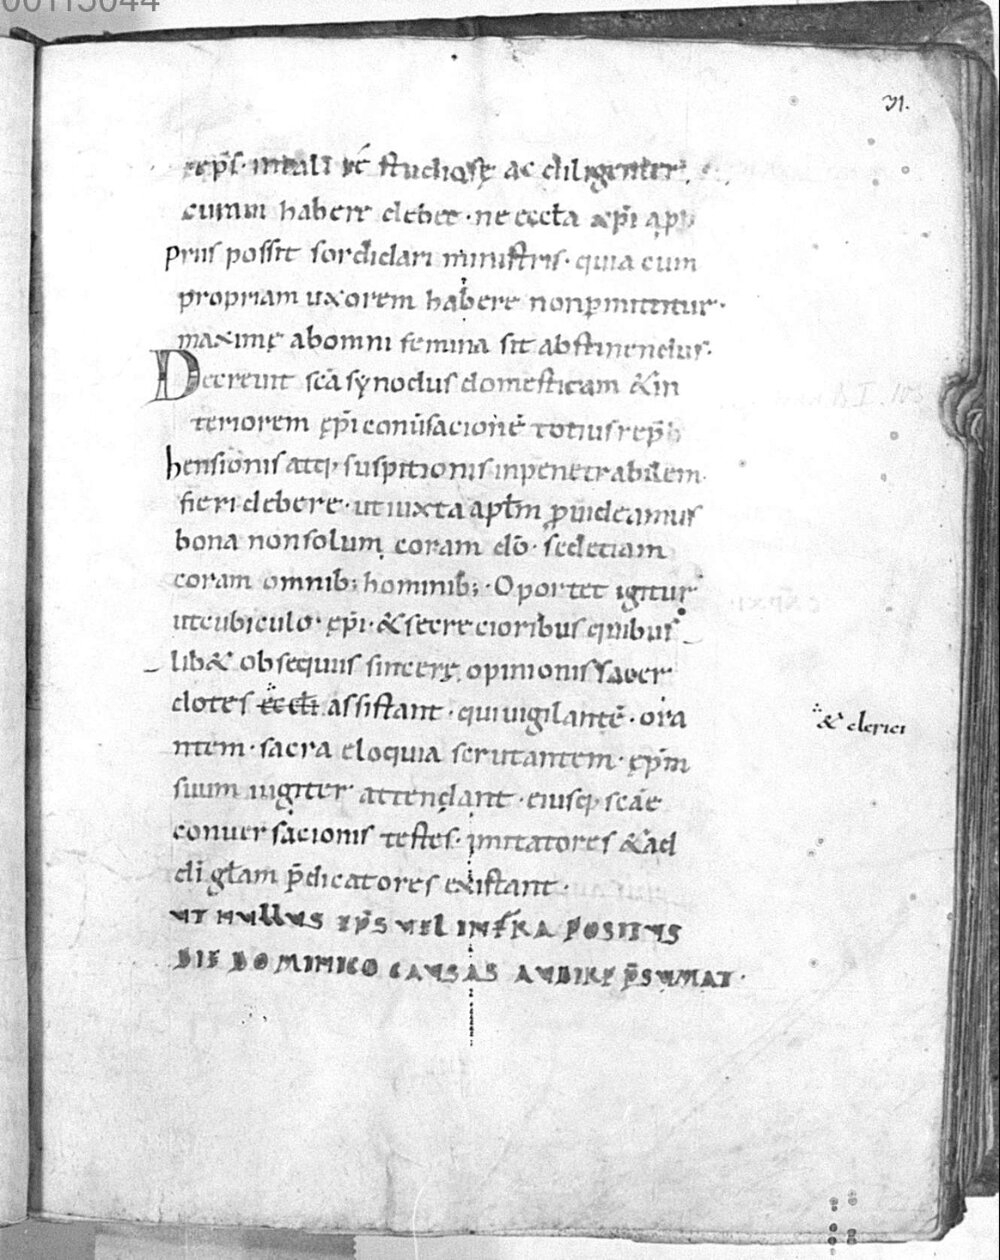 00115044
31.
ep̄s. in tali re studiose ac diligenter
curam habere debet. ne eccłа xp̄i ap
prius possit sordidari ministris. quia cum
propriam uxorem habere non p̄mittitur.
maximę ab omni femina sit abstinendus.
Decreuit sc̄a synodus domesticam & in
teriorem ep̄i conuersacionē totius rep̄
hensionis atq; suspitionis inpenetrabilem
fieri debere. ut iuxta aptm̄ p̄uideamus
bona non solum coram dō. sed etiam
coram omnib; hominib;. Oportet igitur
ut cubiculo ep̄i. & secrecioribus quibus
lib& obsequiis sincerę opinionis sacer
dotes assistant. qui uigilantē. ora
ntem. sacra eloquia scrutantem. ep̄m
suum iugiter attendant. eiusq; scāe
conuersacionis testes. imitatores & ad
dī głam p̄dicatores existant.
& clerici
UT NULLUS EP̄S UEL INFRA POSITUS
DIE DOMINICO CAUSAS AUDIRE P̄SUMAT.